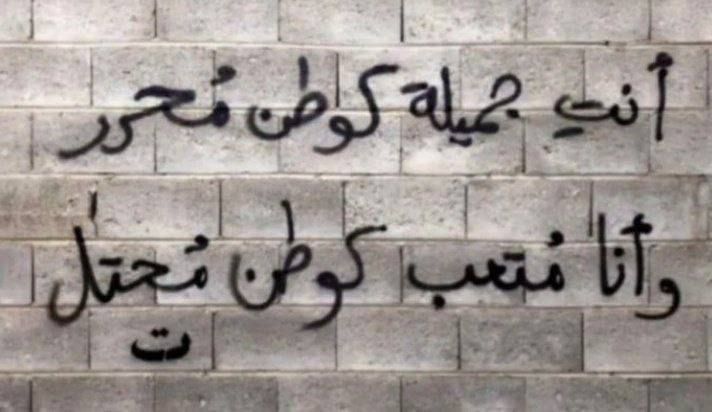 أنتِ جميلة كوطن مُحرر
وأنا مُتعب كوطن مُحتل
ت